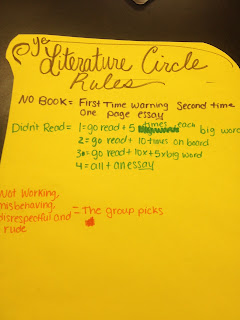 ye
Literature Circle
Rules
NO BOOK = First Time Warning Second time
one page essay
Didn't Read = 1 = go read + 5 times each big word
2 = go read + 10 times on board
3 = go read + 10x + 5x big word
4 = all + an essay
Not Working,
misbehaving,
disrespectful and = The group picks
rude